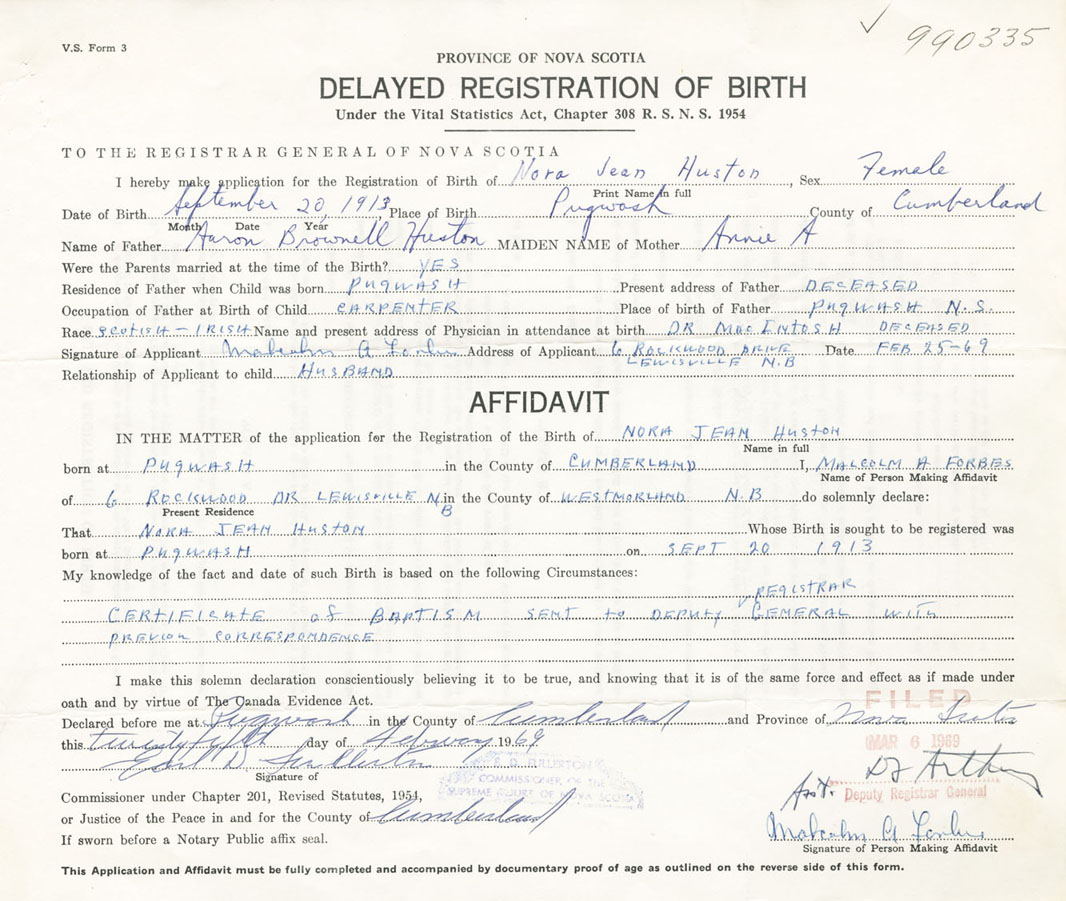 990335
V.S. Form 3
PROVINCE OF NOVA SCOTIA
DELAYED REGISTRATION OF BIRTH
Under the Vital Statistics Act, Chapter 308 R. S. N. S. 1954
TO THE REGISTRAR GENERAL OF NOVA SCOTIA
I hereby make application for the Registration of Birth of Nora Jean Huston, Sex Female
Print Name in full
Date of Birth September 20, 1913 Place of Birth Pugwash County of Cumberland
Month Date Year
Name of Father Aaron Brownell Huston MAIDEN NAME of Mother Annie A
Were the Parents married at the time of the Birth? YES
Residence of Father when Child was born PUGWASH Present address of Father DECEASED
Occupation of Father at Birth of Child CARPENTER Place of birth of Father PUGWASH N.S.
Race SCOTISH - IRISH Name and present address of Physician in attendance at birth DR MACINTOSH DECEASED
Signature of Applicant Malcolm A Forbes Address of Applicant 6 ROCKWOOD DRIVE Date FEB 25-69
LEWISVILLE N.B
Relationship of Applicant to child HUSBAND
AFFIDAVIT
IN THE MATTER of the application for the Registration of the Birth of NORA JEAN HUSTON
Name in full
born at PUGWASH in the County of CUMBERLAND I, MALCOLM A FORBES
Name of Person Making Affidavit
of 6 ROCKWOOD DR LEWISVILLE N.B in the County of WESTMORLAND N.B do solemnly declare:
Present Residence
That NORA JEAN HUSTON Whose Birth is sought to be registered was
born at PUGWASH on SEPT 20 1913
My knowledge of the fact and date of such Birth is based on the following Circumstances:
REGISTRAR
CERTIFICATE of BAPTISM SENT to DEPUTY GENERAL WITH
PREVIOU CORRESPONDENCE
I make this solemn declaration conscientiously believing it to be true, and knowing that it is of the same force and effect as if made under
oath and by virtue of The Canada Evidence Act.
FILED
Declared before me at Pugwash in the County of Cumberland and Province of Nova Scotia
this twenty fifth day of February 1969
MAR 6 1969
Earl D. Fullerton
E. D. FULLERTON
Signature of
COMMISSIONER OF THE
SUPREME COURT OF NOVA SCOTIA
Asst. Deputy Registrar General
Commissioner under Chapter 201, Revised Statutes, 1954,
or Justice of the Peace in and for the County of Cumberland
Malcolm A Forbes
If sworn before a Notary Public affix seal.
Signature of Person Making Affidavit
This Application and Affidavit must be fully completed and accompanied by documentary proof of age as outlined on the reverse side of this form.